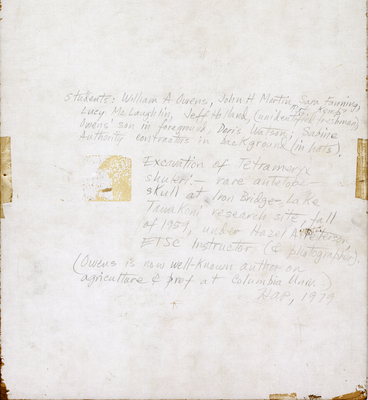 Students: William A Owens, John H Martin, Sara Fanning,
Lucy McLaughlin, Jeff Holland, (unidentified freshman)
Owens' son in foreground, Doris Watson; Sabine
Authority contractors in background (in hats).
Excavation of Tetramery
shuleri — rare antelope
skull at Iron Bridge - Lake
Tawakoni research site, fall
of 1959, under Hazel A Peterson,
ETSC Instructor (& photographer)
(Owens is now well-known author on
agriculture & prof at Columbia Univ.)
HAP, 1979